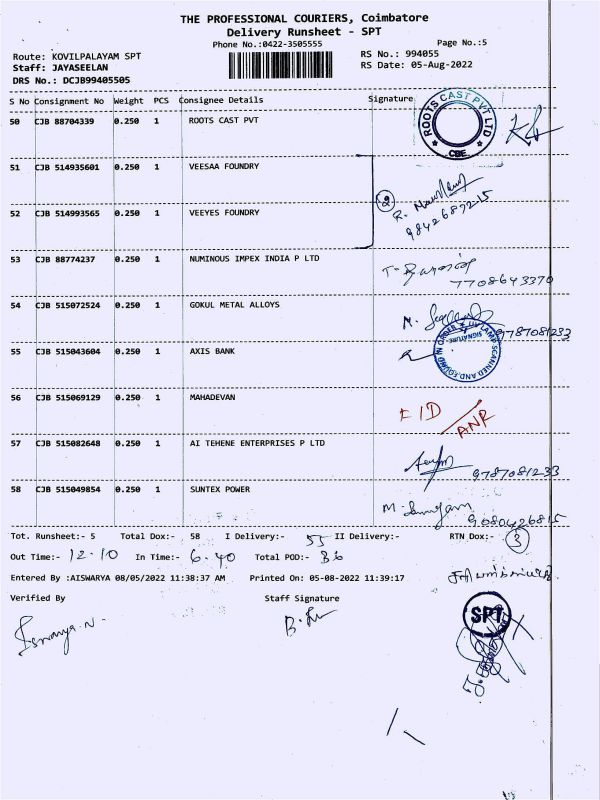 THE PROFESSIONAL COURIERS, Coimbatore
Delivery Runsheet - SPT
Phone No.:0422-3505555
Page No.:5
Route: KOVILPALAYAM SPT
RS No.: 994055
Staff: JAYASEELAN
RS Date: 05-Aug-2022
DRS No.: DCJB99405505
S No Consignment No Weight PCS Consignee Details Signature
50 CJB 88704339 0.250 1 ROOTS CAST PVT
ROOTS CAST PVT LTD
CBE
51 CJB 514935601 0.250 1 VEESAA FOUNDRY
2
52 CJB 514993565 0.250 1 VEEYES FOUNDRY
9842687215
53 CJB 88774237 0.250 1 NUMINOUS IMPEX INDIA P LTD
7708643370
54 CJB 515072524 0.250 1 GOKUL METAL ALLOYS
9787081233
55 CJB 515043604 0.250 1 AXIS BANK
UV LAMP SCANNED AND FOUND IN ORDER
SIGNATURE
56 CJB 515069129 0.250 1 MAHADEVAN
ANR
57 CJB 515082648 0.250 1 AI TEHENE ENTERPRISES P LTD
9787081233
58 CJB 515049854 0.250 1 SUNTEX POWER
9080426815
Tot. Runsheet:- 5 Total Dox:- 58 I Delivery:- 55 II Delivery:- RTN Dox:- 3
Out Time:- 12.10 In Time:- 6.40 Total POD:- 36
Entered By :AISWARYA 08/05/2022 11:38:37 AM Printed On: 05-08-2022 11:39:17
Verified By Staff Signature
SPT